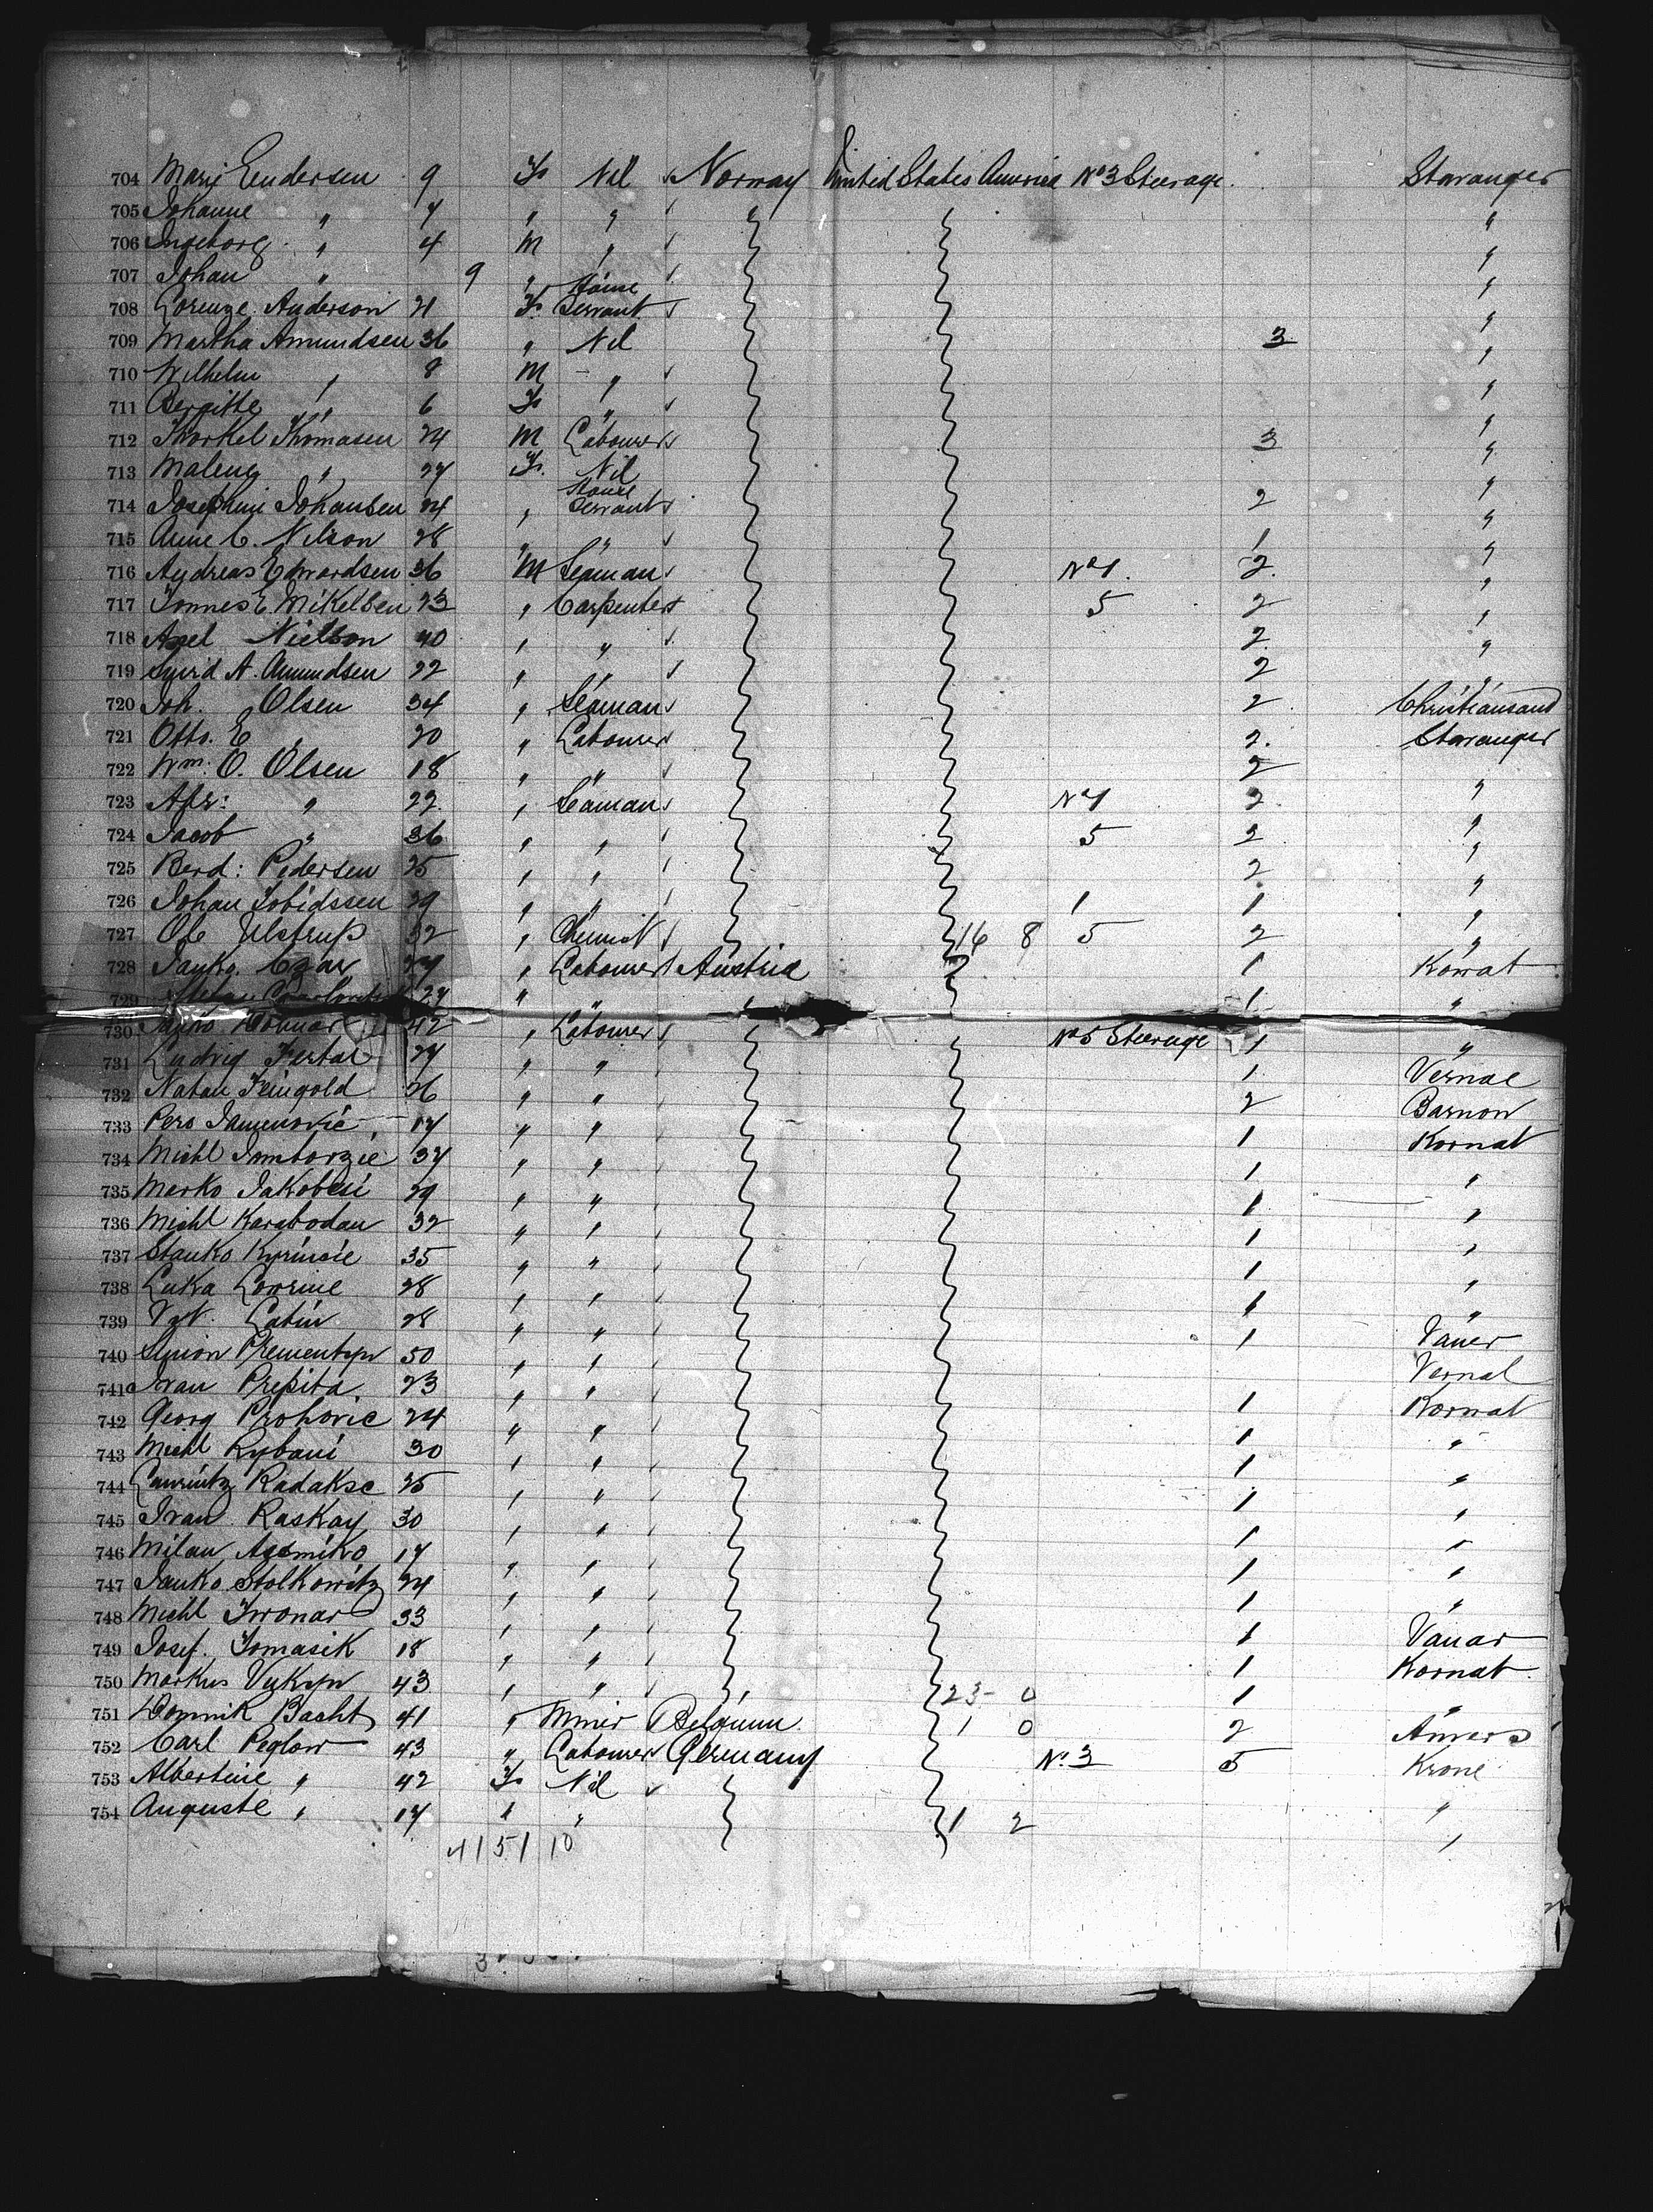 704 Marie Endersen 9 F Nil Norway United States America No 3 Steerage Stavanger
705 Johanne " 7 " " " "
706 Ingeborg " 4 M " "
707 Johan " 9 " "
708 Lorenze Anderson 21 F House Servant "
709 Martha Amundsen 36 " Nil 3 "
710 Wilhelm " 8 M " "
711 Bergitte " 6 F " "
712 Thorkel Thomasen 24 M Labourer 3 "
713 Malene " 27 F Nil "
714 Josephine Johansen 24 " House Servant 2 "
715 Anne C. Nilson 28 " " 1 "
716 Andreas Edwardsen 36 M Seaman No 1 2 "
717 Tonnes E. Mikelsen 23 " Carpenter 5 2 "
718 Axel Nielson 40 " " 2 "
719 Amundsen 22 " 2 "
720 Joh. Olsen 34 " Seaman 2 Christiansand
721 Otto. E " 20 " Labourer 2 Stavanger
722 Wm. O. Olsen 18 " " 2 "
723 " 22 " Seaman No 1 2 "
724 Jacob " 36 " " 5 2 "
725 Berd: Pedersen 25 " " 2 "
726 Johan 29 " " 1 1 "
727 Ole Ulstrup 32 " Chemist 16 8 5 2 "
728 Janko Czar 27 " Labourer Austria 1 Kowat
729 27 " " 1 "
730 42 " Labourer No 5 Steerage 1 "
731 Ludvig Fertal 27 " " 1 Vernal
732 Natan Feingold 26 " " 2 Barnon
733 Pero 17 " " 1 Kornat
734 Michl 37 " " 1 "
735 Marko Jakobesi 29 " " 1 "
736 Michl Karabodan 32 " " 1 "
737 Stanko 35 " " 1 "
738 Luka 28 " " 1 "
739 Labin 28 " " 1 Vaner
740 Simon 50 " " Vernal
741 Ivan Prepita 23 " " 1 Kornat
742 Georg Prohovic 24 " " 1 "
743 Michl Rybani 30 " " 1 "
744 Radakse 25 " " 1 "
745 Ivan Raskay 30 " " 1 "
746 Milan 17 " " 1 "
747 Janko Stolkowitz 24 " " 1 "
748 Michl 33 " " 1 Vanar
749 Josef Tomasik 18 " " 1 Kornat
750 Markus 43 " " 23 0 1 "
751 Dominik Bacht 41 " Miner Belgium 1 0 2 Anvers
752 Carl Peglow 43 " Labourer Germany No. 3 5 Krone
753 Albertine " 42 F Nil "
754 Auguste " 17 " " 1 2 "
41 51 10